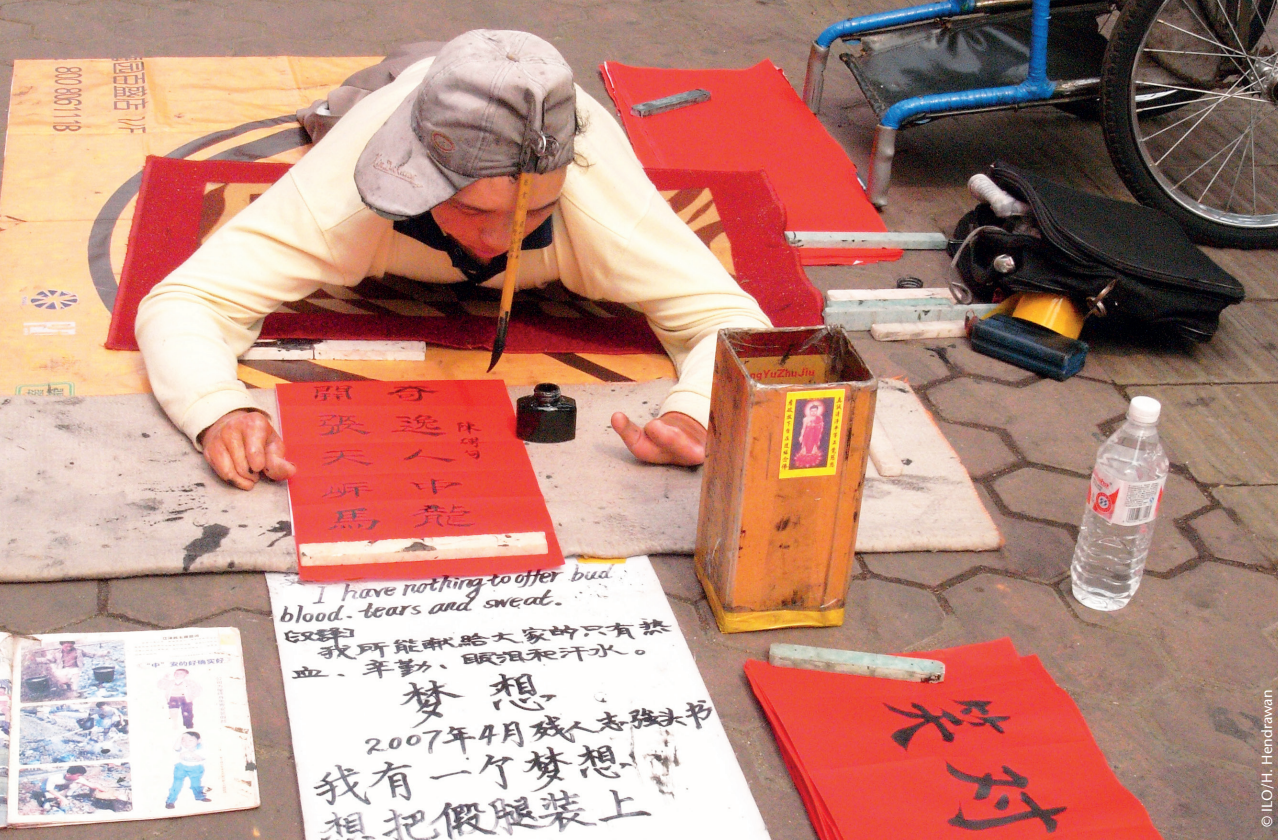 800 806 1118
奇逸人中龍
開張天岸馬
ngYuZhuJiu
I have nothing to offer bud
blood. tears and sweat.
我所能献给大家的只有热
血、辛勤、眼泪和汗水。
梦 想
2007年4月残人志强头书
我有一个梦想.
想把假腿装上
笑对
© ILO/H. Hendrawan